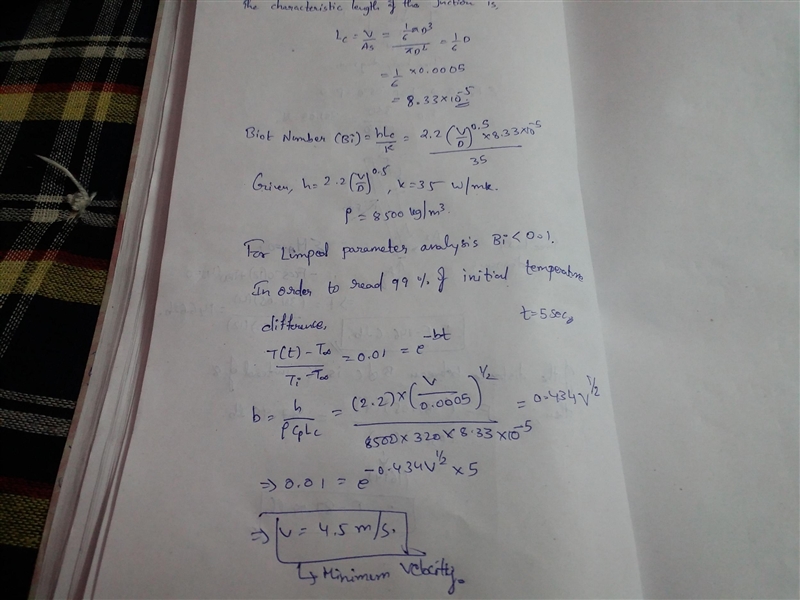 The characteristic length of the Junction is,
Lc = V/As = (1/6 πD³)/(πD²) = 1/6 D
= 1/6 × 0.0005
= 8.33×10⁻⁵
Biot Number (Bi) = hLc/K = (2.2 (V/D)^0.5 × 8.33×10⁻⁵)/35
Given, h = 2.2 (V/D)^0.5, K = 35 W/mk.
ρ = 8500 kg/m³.
For Lumped parameter analysis Bi < 0.1.
In order to read 99% of initial temperature
difference, t = 5 sec,
(T(t) - T∞)/(Ti - T∞) = 0.01 = e^-bt
b = h/(ρ Cp Lc) = ((2.2) × (V/0.0005)^1/2)/(8500 × 320 × 8.33 × 10⁻⁵) = 0.434 V^1/2
⇒ 0.01 = e^(-0.434 V^1/2 × 5)
⇒ V = 4.5 m/s.
↳ Minimum Velocity.